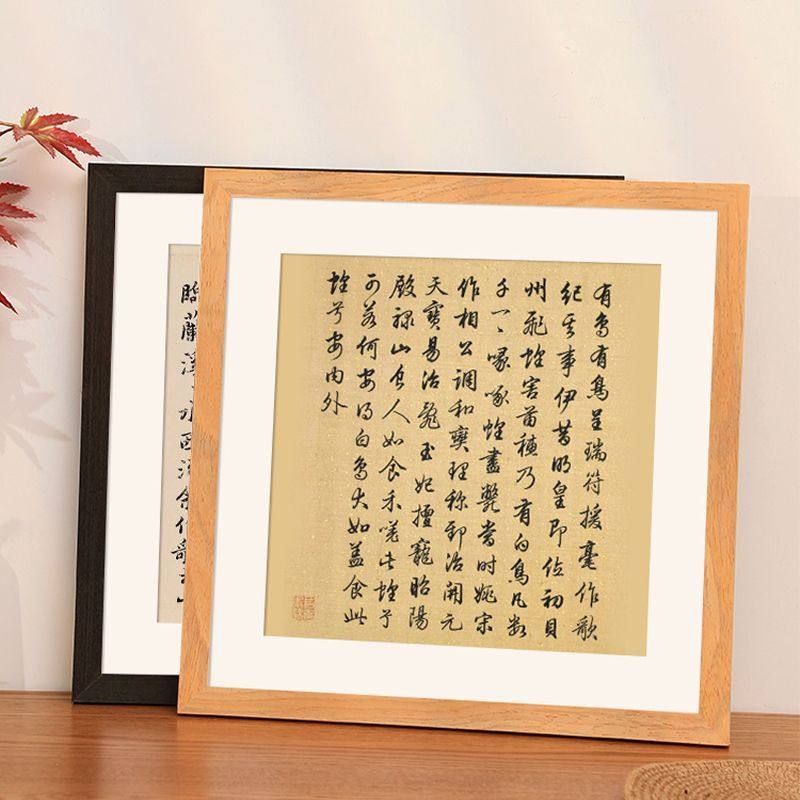 有鳥有鳥呈瑞符援毫作歌
紀其事伊昔明皇即位初貝
州飛蝗害苗穗乃有白鳥凡數
千一〻喙啄蝗盡斃當時姚宋
作相公調和爕理称郅治開元
天寶易治亂玉妃擅寵昭陽
殿祿山食人如食禾嗟此蝗乎
可若何安得白鳥大如蓋食此
蝗兮安內外
臨蘭溪